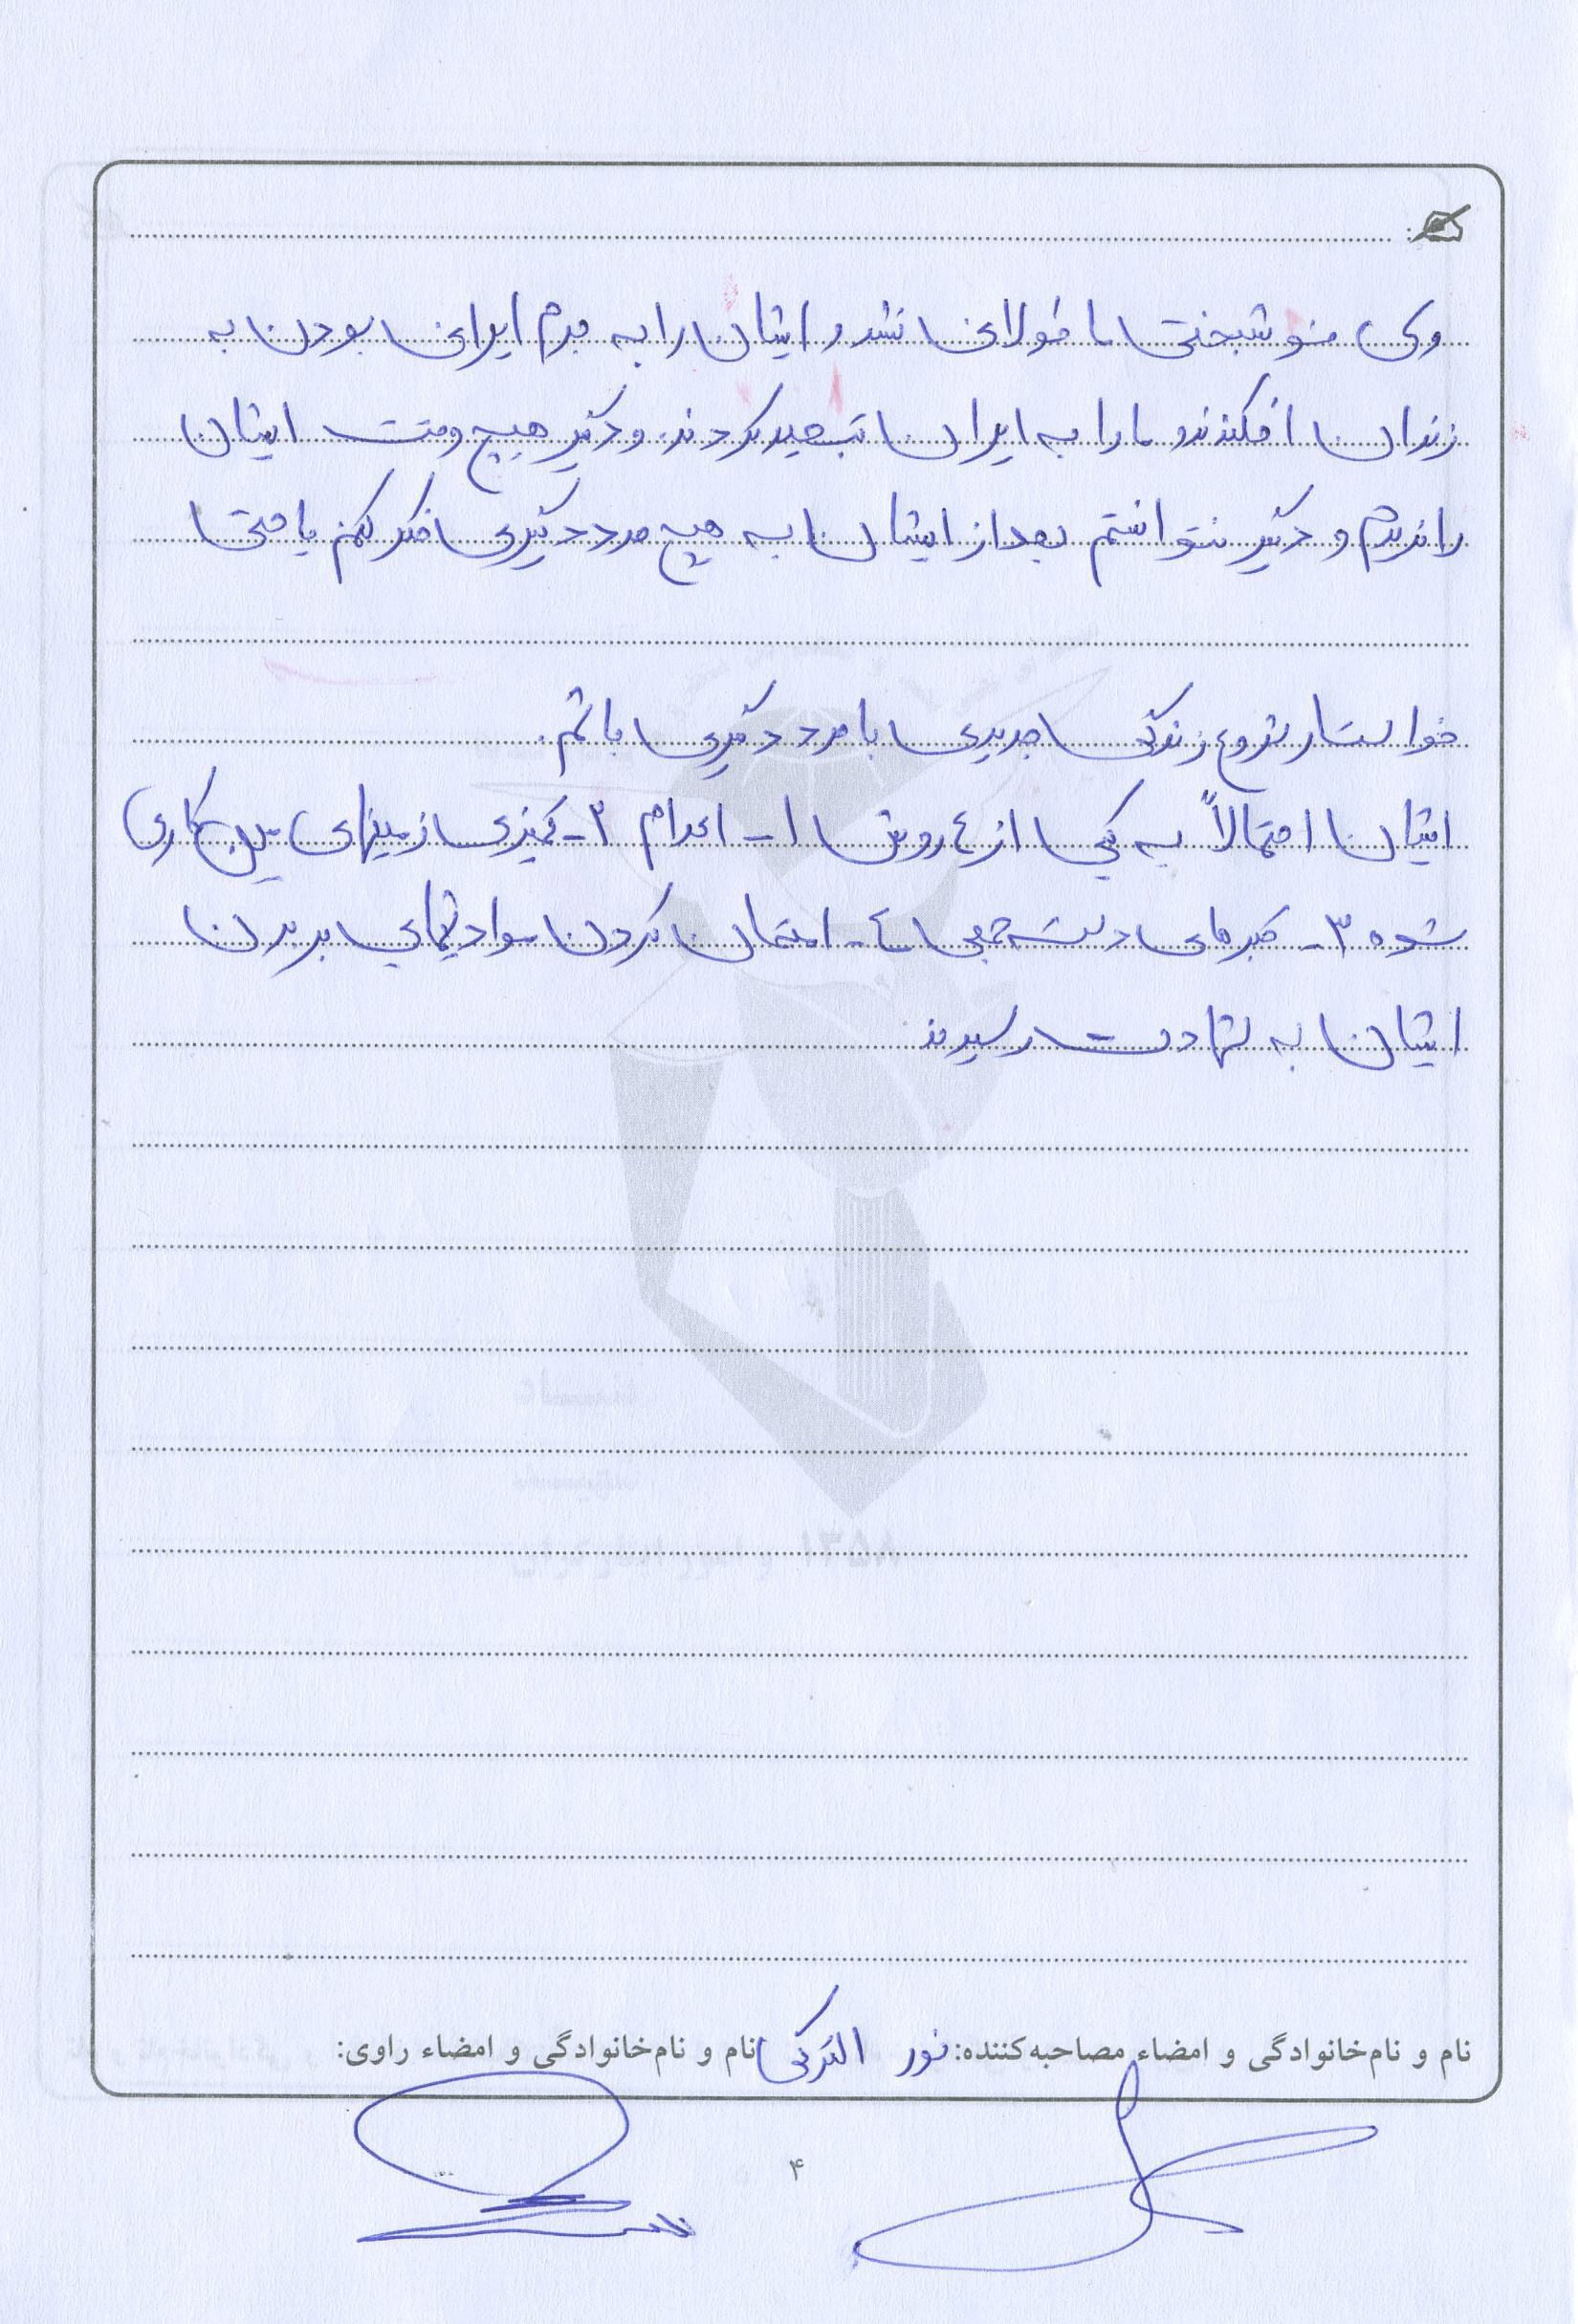 ولی خوشبختی ما طولانی نشد و ایشان را به جرم ایرانی بودن به
زندان افکندند و ما را به ایران تبعید کردند. و دیگر هیچ وقت ایشان
را ندیدم و دیگر نتوانستم بعد از ایشان به هیچ مرد دیگری فکر کنم یا حتی
خواستار شروع زندگی جدیدی با مرد دیگری باشم.
ایشان احتمالاً به یکی از ٤ روش ۱- اعدام ۲- تمیزی زمینهای مین کاری
شده ۳- قبرهای دسته جمعی ٤- امتحان کردن مواد شیمیایی بر بدن
ایشان به شهادت رسیدند
نام و نام‌خانوادگی و امضاء مصاحبه‌کننده: نور الترکی نام و نام‌خانوادگی و امضاء راوی:
۴